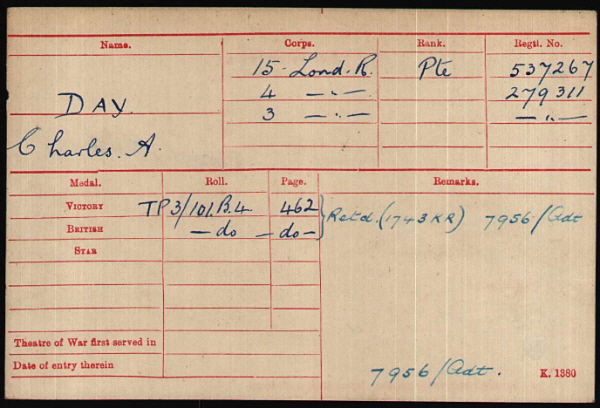 Name. Corps. Rank. Regtl. No.
15 Lond. R. Pte 537267
DAY. 4 — " — 279311
Charles. A. 3 — " — — " —
Medal. Roll. Page. Remarks.
VICTORY TP3/101.B.4 462 Retd. (1743 KR) 7956/Adt
BRITISH — do — do —
STAR
Theatre of War first served in
Date of entry therein
7956/Adt. K. 1380